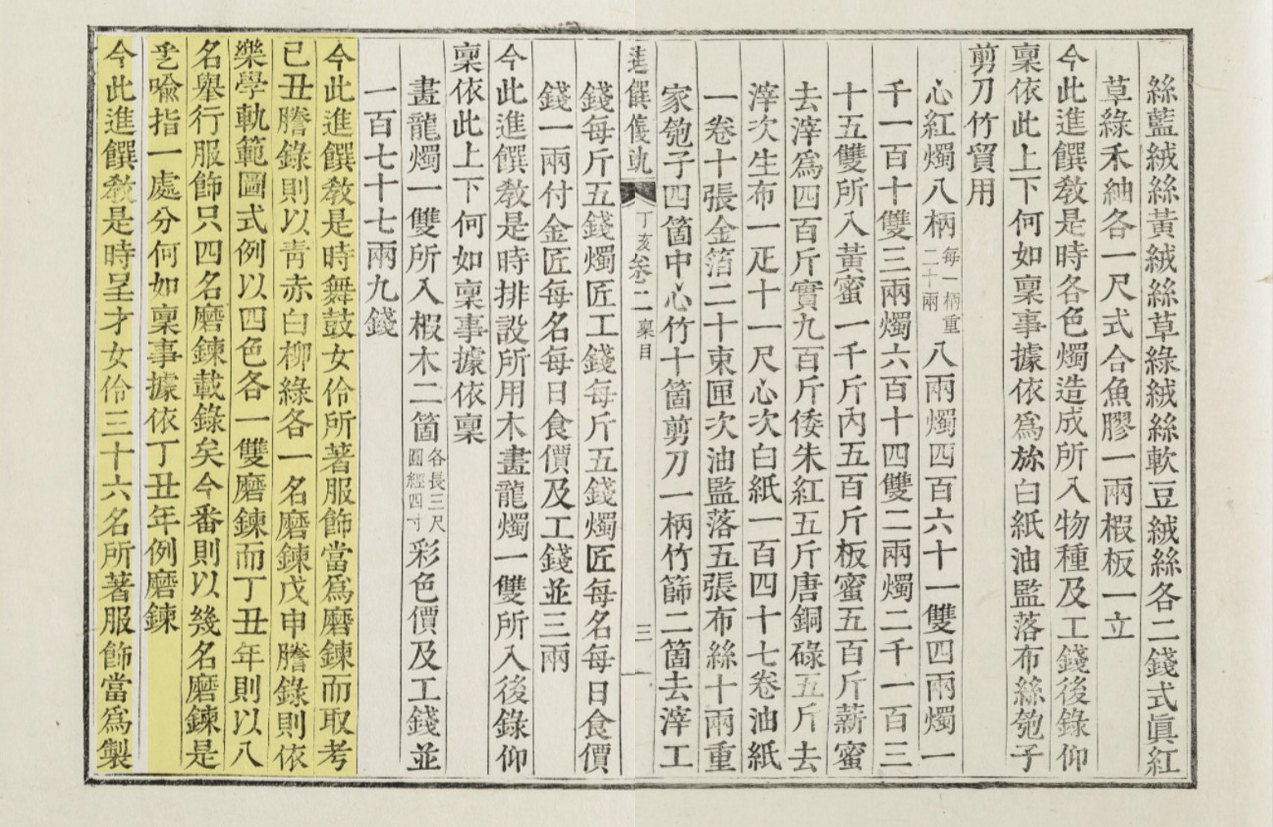 絲藍絨絲黃絨絲草綠絨絲軟豆絨絲各二錢式眞紅
草綠禾紬各一尺式合魚膠一兩椵板一立
今此進饌敎是時各色燭造成所入物種及工錢後錄仰
稟依此上下何如稟事據依爲旀白紙油監落布絲匏子
剪刀竹貿用
心紅燭八柄每一柄重二十兩八兩燭四百六十一雙四兩燭一
千一百十雙三兩燭六百十四雙二兩燭二千一百三
十五雙所入黃蜜一千斤內五百斤板蜜五百斤薪蜜
去滓爲四百斤實九百斤倭朱紅五斤唐銅碌五斤去
滓次生布一疋十一尺心次白紙一百四十七卷油紙
一卷十張金箔二十束匣次油監落五張布絲十兩重
家匏子四箇中心竹十箇剪刀一柄竹篩二箇去滓工
進饌儀軌 丁亥 卷二 稟目 三一
錢每斤五錢燭匠工錢每斤五錢燭匠每名每日食價
錢一兩付金匠每名每日食價及工錢並三兩
今此進饌敎是時排設所用木畫龍燭一雙所入後錄仰
稟依此上下何如稟事據依稟
畫龍燭一雙所入椵木二箇各長三尺圓經四寸彩色價及工錢並
一百七十七兩九錢
今此進饌敎是時舞鼓女伶所著服飾當爲磨鍊而取考
己丑謄錄則以靑赤白柳綠各一名磨鍊戊申謄錄則依
樂學軌範圖式例以四色各一雙磨鍊而丁丑年則以八
名擧行服飾只四名磨鍊載錄矣今番則以幾名磨鍊是
乎喩指一處分何如稟事據依丁丑年例磨鍊
今此進饌敎是時呈才女伶三十六名所著服飾當爲製